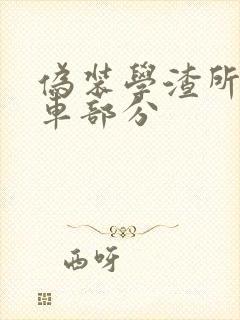 偽裝學渣所
車部分
西呀